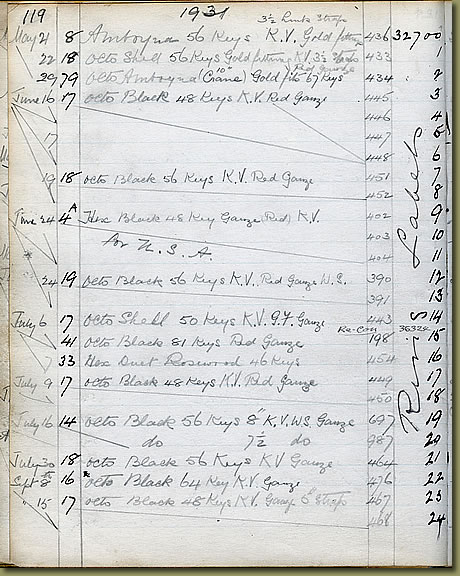 119 1931
3½ Link Straps
May 21 8 Amboyna 56 Keys K.V. Gold fitting 436 32700
22 18 Octo Shell 56 Keys Gold fitting KV 3½ Straps 433 1
Red Gauze
29 79 Octo Amboyna (Crane) 10" Gold fits 67 Keys 434 2
June 16 17 Octo Black 48 Keys K.V. Red Gauze 445 3
446 4
447 5
448 6
19 18 Octo Black 56 Keys K.V. Red Gauze 451 7
452 8
June 24 4A Hex Black 48 Key Gauze (Red) K.V. 402 9
403 10
for U.S.A. 404 11
24 19 Octo Black 56 Keys K.V. Red Gauze W.S. 390 12
391 13
July 6 17 Octo Shell 50 Keys K.V. G.F. Gauze 443 14
Re-Con 36324
41 Octo Black 81 Keys Red Gauze 198 15
7 33 Hex Duet Rosewood 46 Keys 454 16
July 9 17 Octo Black 48 Keys K.V. Red Gauze 449 17
450 18
July 16 14 Octo Black 56 Keys 8" K.V. W.S. Gauze 697 19
do 7½ do 987 20
July 30 18 Octo Black 56 Keys K.V Gauze 464 21
Sept 8th 16 Octo Black 64 Key K.V. Gauze 476 22
15 17 Octo Black 48 Keys K.V. Gauze Straps 467 23
468 24
Labels
Rims